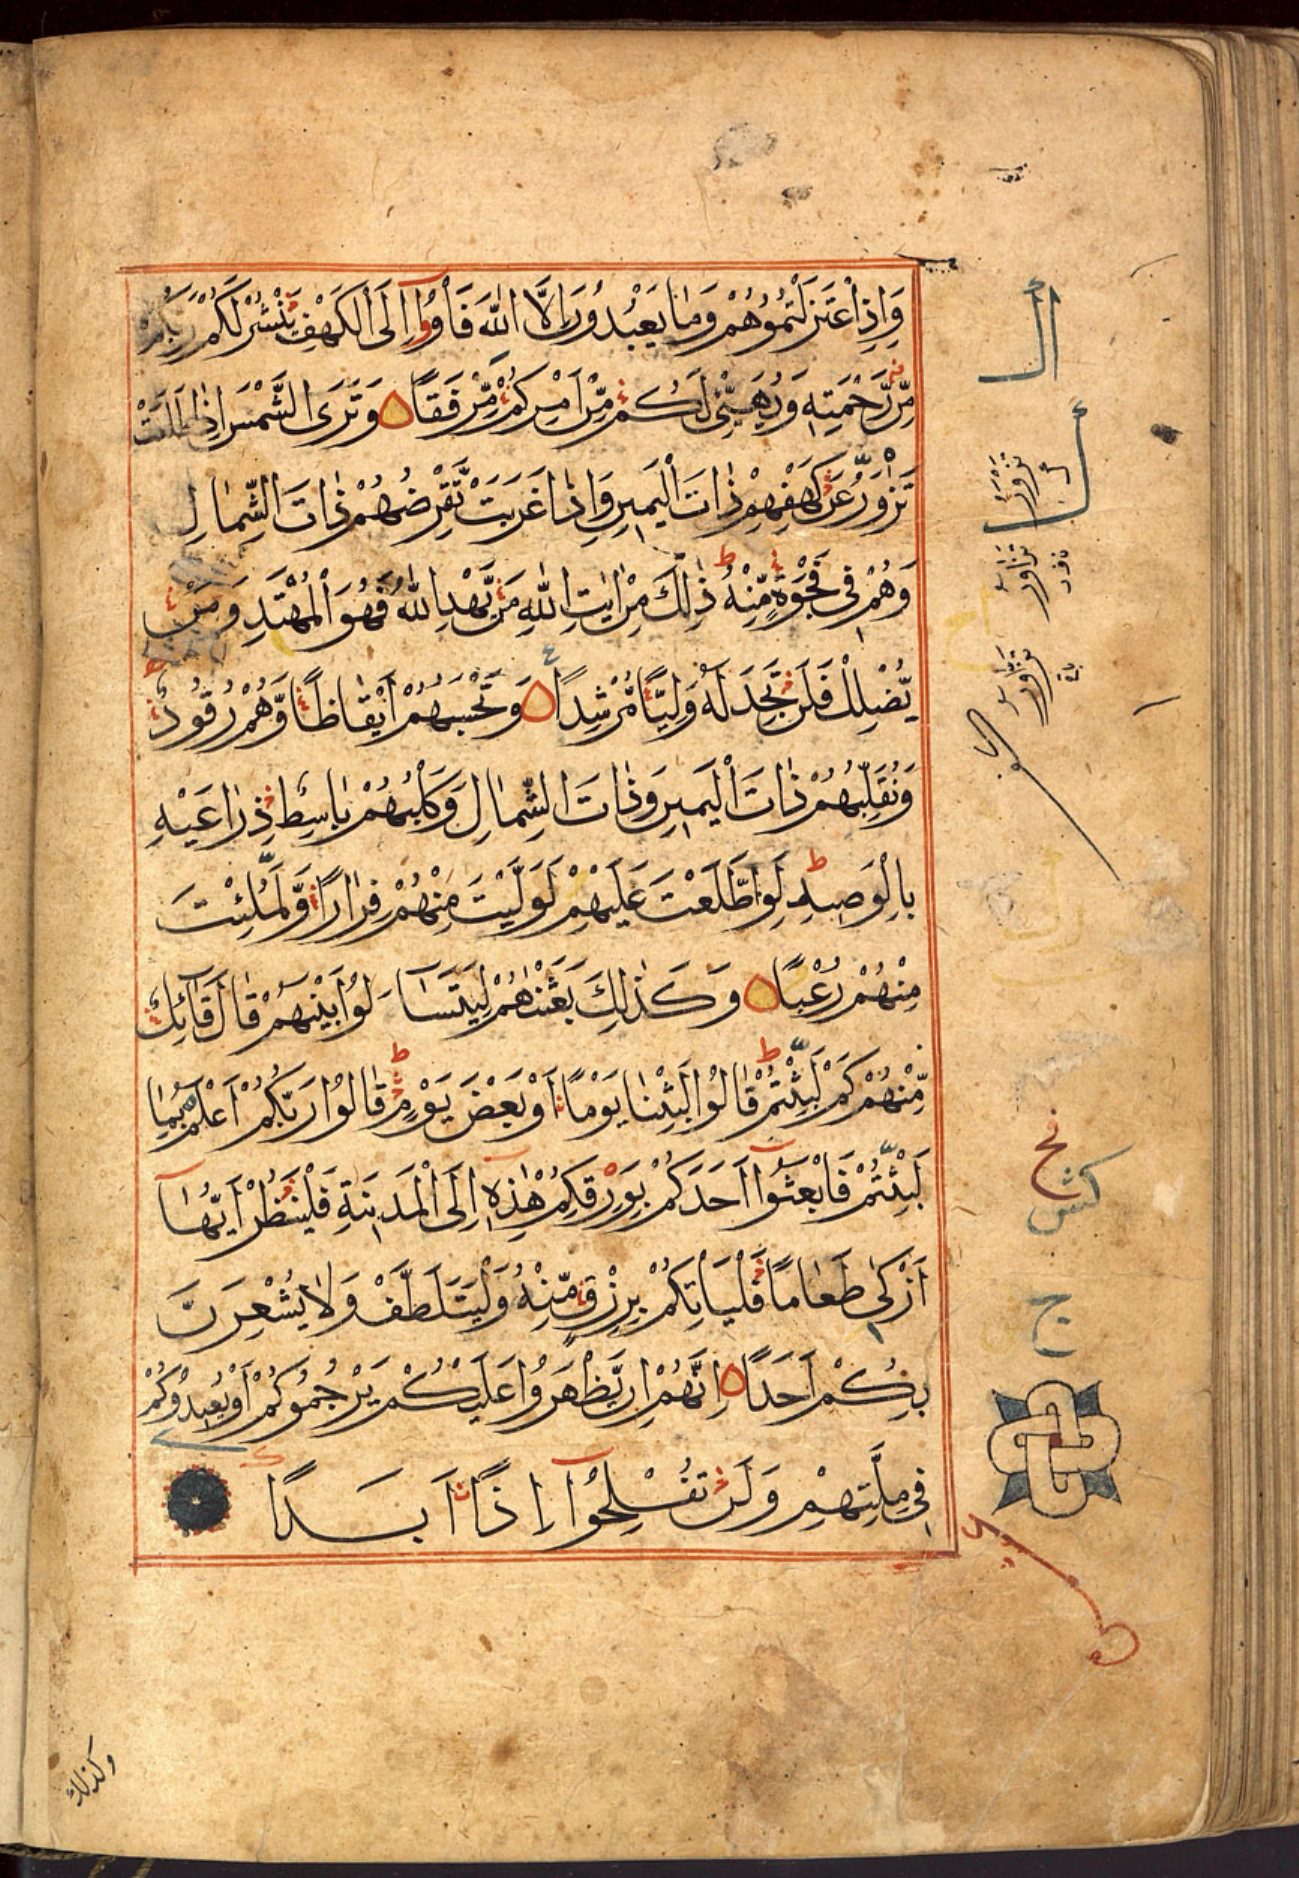 وَاِذِ اعْتَزَلْتُمُوْهُمْ وَمَا يَعْبُدُوْنَ اِلَّا اللّٰهَ فَأْوٗۤا اِلَى الْكَهْفِ يَنْشُرْ لَكُمْ رَبُّكُمْ
مِّنْ رَّحْمَتِهٖ وَيُهَيِّئْ لَكُمْ مِّنْ اَمْرِكُمْ مِّرْفَقًا وَتَرَى الشَّمْسَ اِذَا طَلَعَتْ
تَزْوَرُّ عَنْ كَهْفِهِمْ ذَاتَ الْيَمِيْنِ وَاِذَا غَرَبَتْ تَّقْرِضُهُمْ ذَاتَ الشِّمَالِ
وَهُمْ فِيْ فَجْوَةٍ مِّنْهُ ط ذٰلِكَ مِنْ اٰيٰتِ اللّٰهِ مَنْ يَّهْدِ اللّٰهُ فَهُوَ الْمُهْتَدِ وَمَنْ
يُّضْلِلْ فَلَنْ تَجِدَ لَهٗ وَلِيًّا مُّرْشِدًا وَتَحْسَبُهُمْ اَيْقَاظًا وَّهُمْ رُقُوْدٌ
وَنُقَلِّبُهُمْ ذَاتَ الْيَمِيْنِ وَذَاتَ الشِّمَالِ وَكَلْبُهُمْ بَاسِطٌ ذِرَاعَيْهِ
بِالْوَصِيْدِ ط لَوِ اطَّلَعْتَ عَلَيْهِمْ لَوَلَّيْتَ مِنْهُمْ فِرَارًا وَّلَمُلِئْتَ
مِنْهُمْ رُعْبًا وَكَذٰلِكَ بَعَثْنٰهُمْ لِيَتَسَاءَلُوْا بَيْنَهُمْ قَالَ قَائِلٌ
مِّنْهُمْ كَمْ لَبِثْتُمْ ط قَالُوْا لَبِثْنَا يَوْمًا اَوْ بَعْضَ يَوْمٍ ط قَالُوْا رَبُّكُمْ اَعْلَمُ بِمَا
لَبِثْتُمْ فَابْعَثُوْۤا اَحَدَكُمْ بِوَرِقِكُمْ هٰذِهٖ اِلَى الْمَدِيْنَةِ فَلْيَنْظُرْ اَيُّهَا
اَزْكٰى طَعَامًا فَلْيَاْتِكُمْ بِرِزْقٍ مِّنْهُ وَلْيَتَلَطَّفْ وَلَا يُشْعِرَنَّ
بِكُمْ اَحَدًا اِنَّهُمْ اِنْ يَّظْهَرُوْا عَلَيْكُمْ يَرْجُمُوْكُمْ اَوْ يُعِيْدُوْكُمْ
فِيْ مِلَّتِهِمْ وَلَنْ تُفْلِحُوْۤا اِذًا اَبَدًا
وكذلك